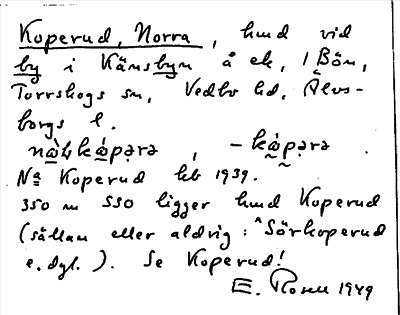 Koperud, Norra, hmd vid
by i Känsbyn å ek. 1 Bön,
Torrskogs sn, Vedbo hd, Älvs-
borgs l.
nɷ̀ʟkɷ́pərə, –kɷ́pərə.
Na Koperud kb 1939.
350 m SSO ligger hmd Koperud
(sällan eller aldrig: ^Sörkoperud
e.dyl.). Se Koperud!
E. Rosell 1949